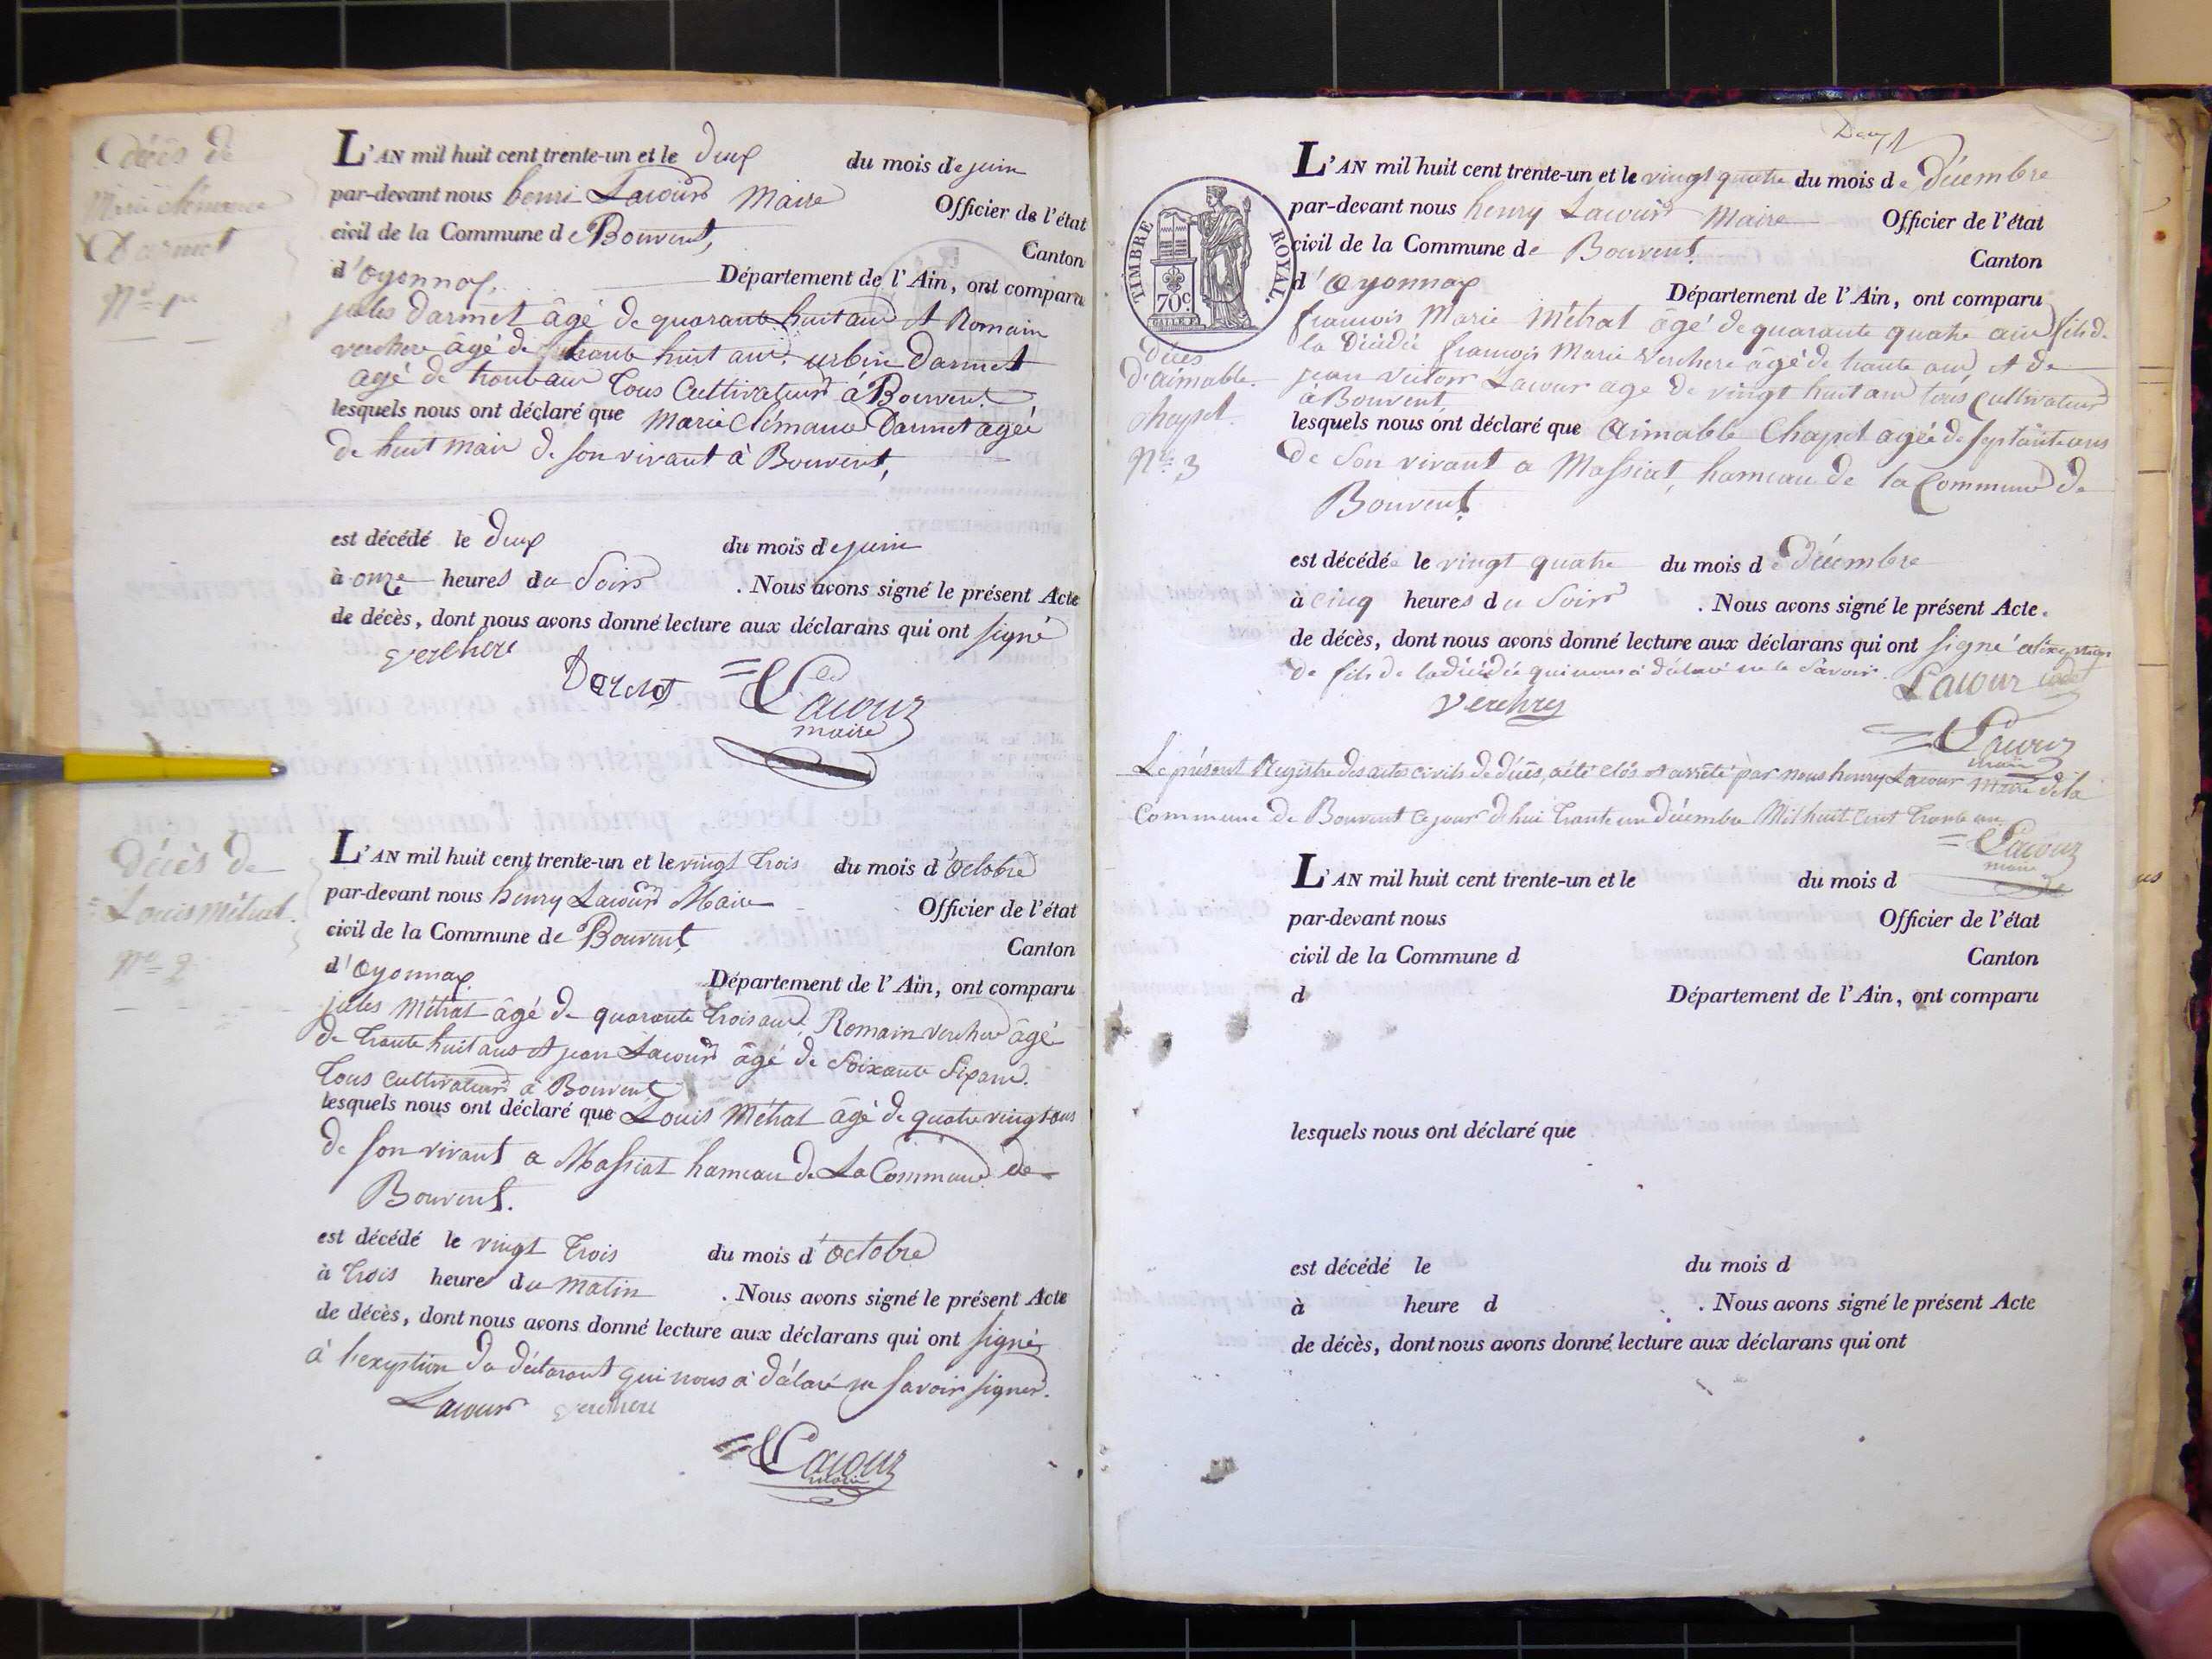 Décès de
Marie Clémance
Darmet
Nº 1er
L'AN mil huit cent trente-un et le deux du mois de juin
par-devant nous henri Lacour Maire Officier de l'état
civil de la Commune de Bouvent, Canton
d'Oyonnax. Département de l'Ain, ont comparu
jules Darmet âgé de quarante huit ans et Romain
verchere agé de trante huit ans. urbin Darmet
agé de trente ans Tous Cultivateurs à Bouvent
lesquels nous ont déclaré que Marie Clémance Darmet agée
de huit mois de son vivant à Bouvent,
est décédé le deux du mois de juin
à onze heures du Soir . Nous avons signé le présent Acte
de décès, dont nous avons donné lecture aux déclarans qui ont signé
verchere
Darmet
Lacour
maire
Décès de
Louis Métrat.
Nº 2
L'AN mil huit cent trente-un et le vingt Trois du mois d'Octobre
par-devant nous henry Lacour Maire Officier de l'état
civil de la Commune de Bouvent, Canton
d'Oyonnax Département de l'Ain, ont comparu
jules Métrat âgé de quarante Trois ans, Romain verchere âgé
de Trante huit ans et jean Lacour âgé de Soixante Six ans.
Tous cultivateurs à Bouvent
lesquels nous ont déclaré que Louis Métrat âgé de quatre vingt ans
de son vivant a Massiat hameau de La Commune de
Bouvent.
est décédé le vingt Trois du mois d'Octobre
à Trois heures du matin . Nous avons signé le présent Acte
de décès, dont nous avons donné lecture aux déclarans qui ont signé
à l'exeption du déclarant qui nous à déclaré ne savoir signer.
Lacour verchere
Lacour
maire
Deux
TIMBRE ROYAL.
70 c
L'AN mil huit cent trente-un et le vingt quatre du mois de Décembre
par-devant nous henry Lacour Maire Officier de l'état
civil de la Commune de Bouvent Canton
d'Oyonnax Département de l'Ain, ont comparu
françois Marie Métrat âgé de quarante quatre ans fils de
la Décédée françois Marie Verchere âgé de trante ans et de
jean victor Lacour age de vingt huit ans tous cultivateurs
à Bouvent
Décès
d'aimable
Chapet
Nº 3
lesquels nous ont déclaré que Aimable Chapet agée de septante ans
de Son vivant a Massiat, hameau de la Commune de
Bouvent.
est décédée le vingt quatre du mois de Décembre
à cinq heures du Soir . Nous avons signé le présent Acte.
de décès, dont nous avons donné lecture aux déclarans qui ont signé
de fils de la décédée qui nous à déclaré ne le Savoir.
Lacour
Lacour
maire
Le présent Registre des actes civils de décès, a été clos et arrêté par nous henry Lacour maire de la
Commune de Bouvent ce jour d'hui Trante un décembre Mil huit Cent Trante un
Lacour
maire
L'AN mil huit cent trente-un et le du mois d
par-devant nous Officier de l'état
civil de la Commune d Canton
d Département de l'Ain, ont comparu
lesquels nous ont déclaré que
est décédé le du mois d
à heure d . Nous avons signé le présent Acte
de décès, dont nous avons donné lecture aux déclarans qui ont